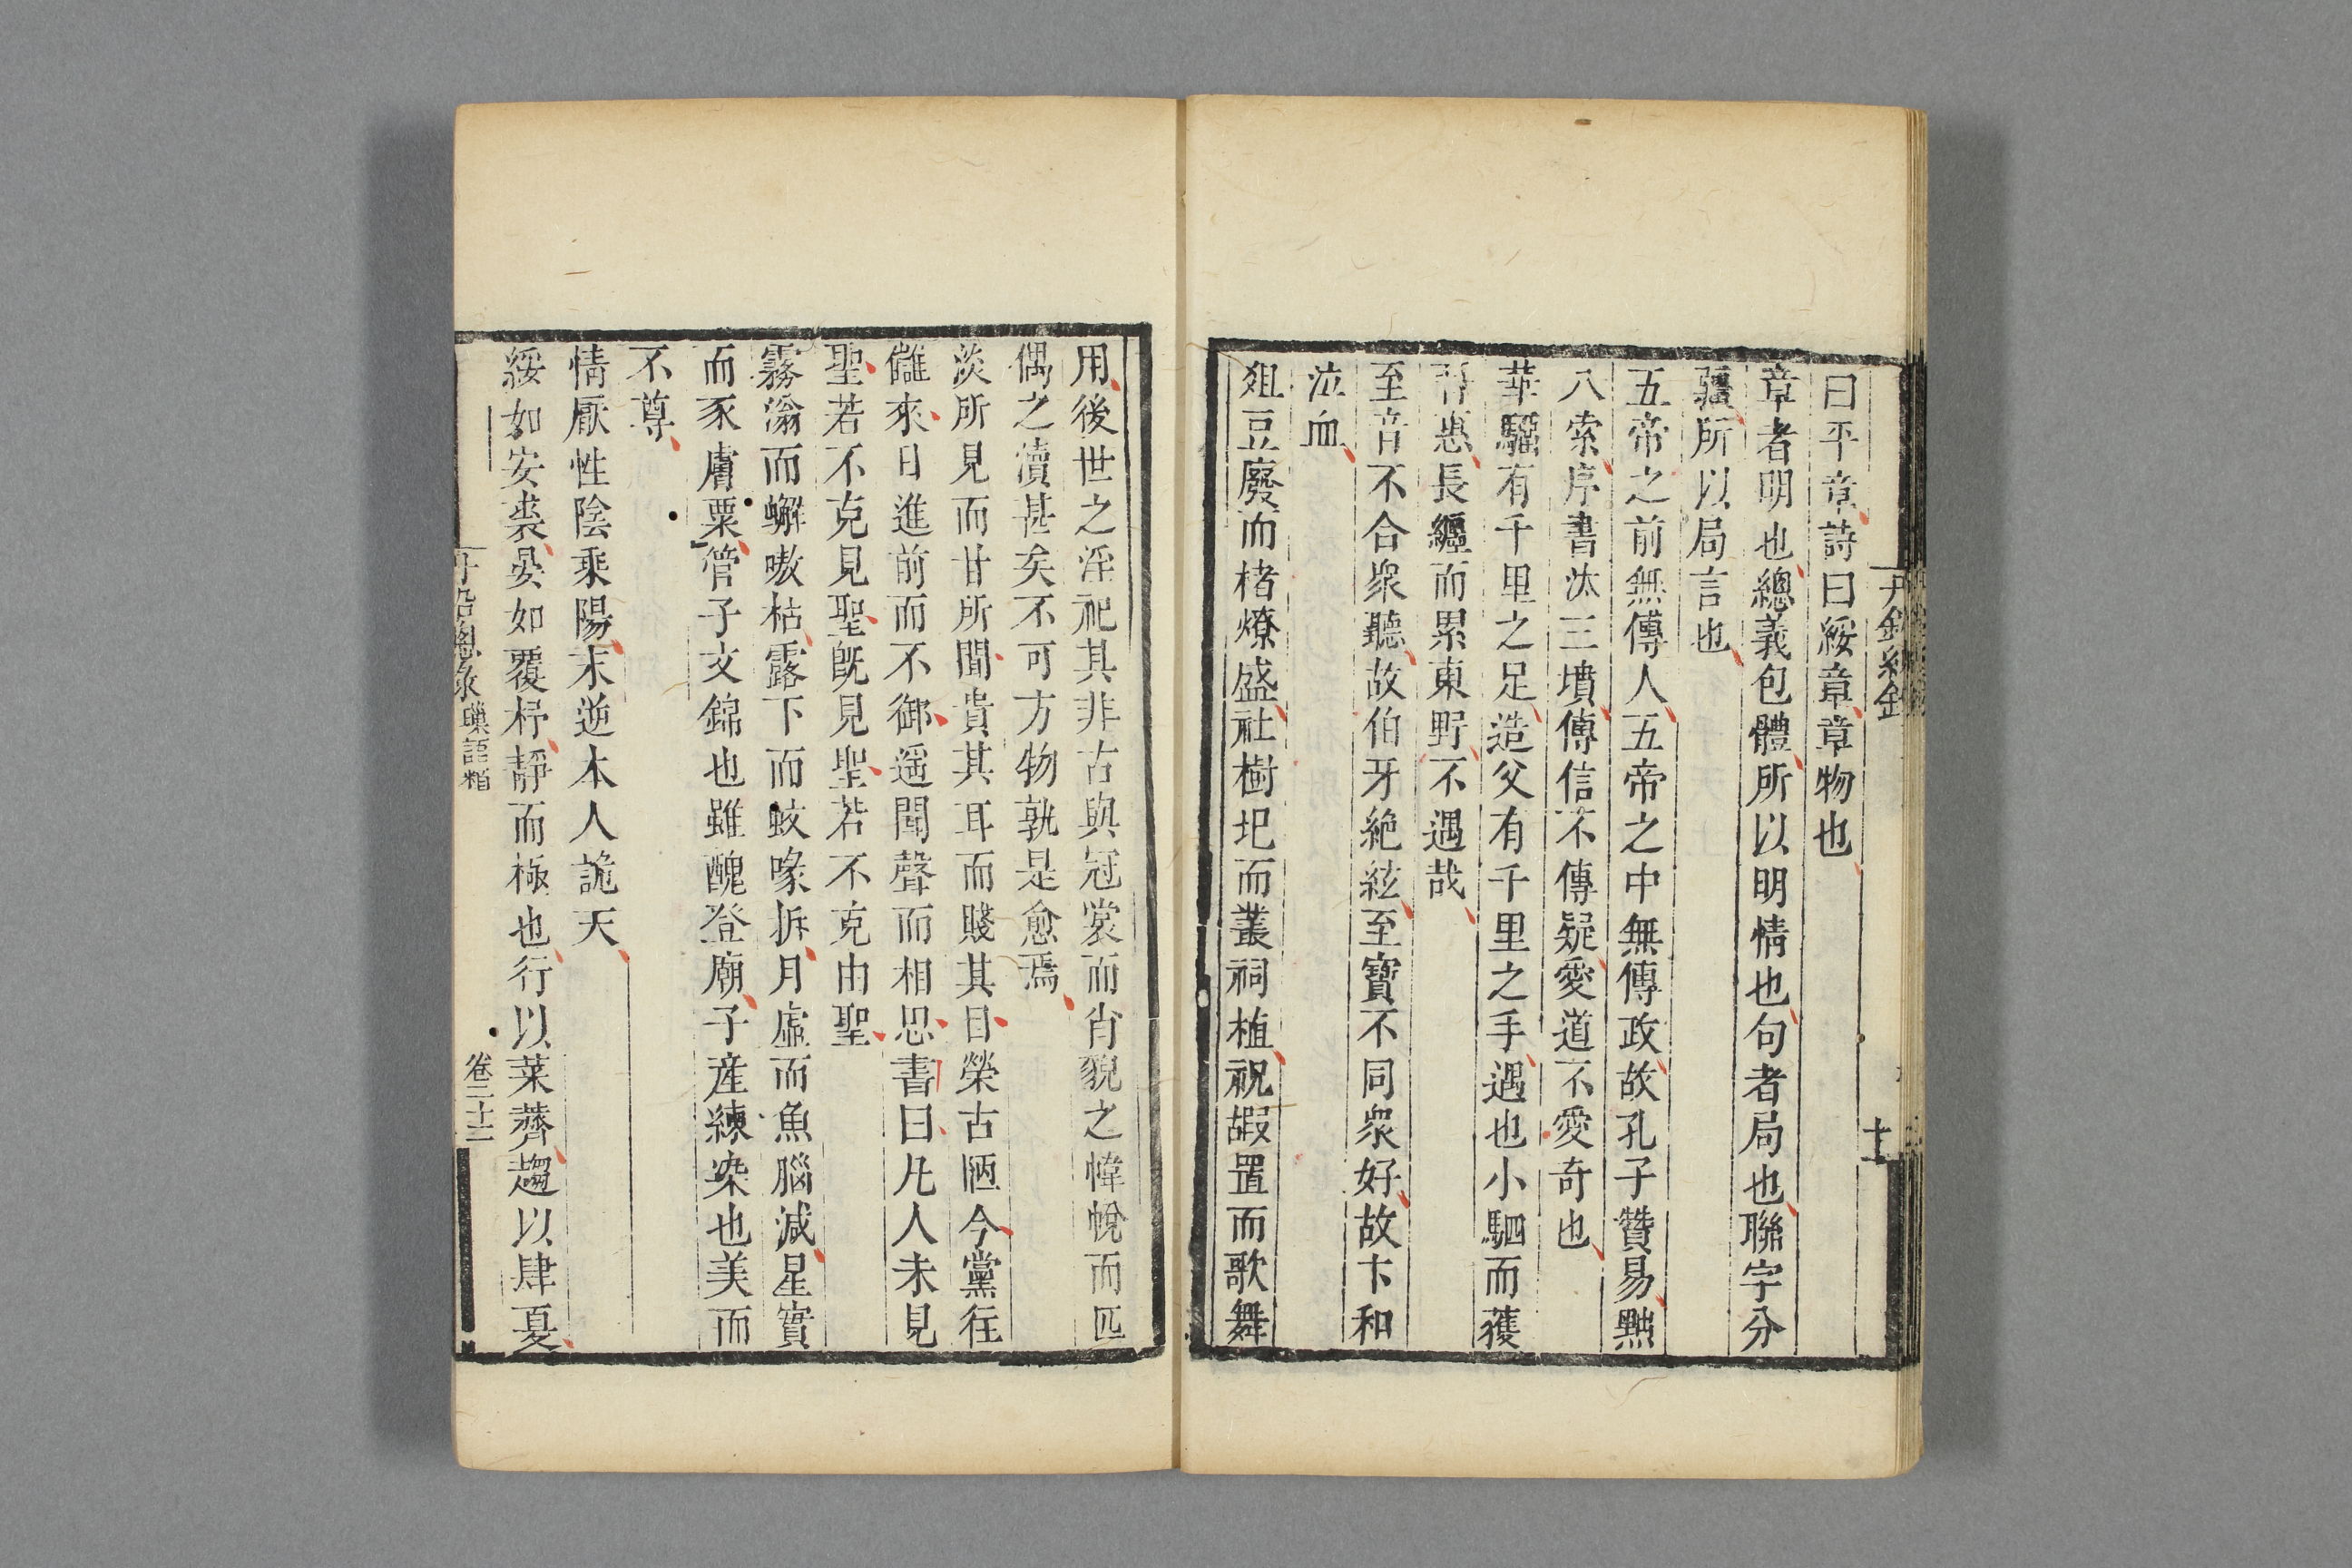 曰平章詩曰綏章章物也
章者明也總義包體所以明情也句者局也聯字分
疆所以局言也
五帝之前無傳人五帝之中無傳政故孔子贊易黜
八索序書汰三墳傳信不傳疑愛道不愛奇也
華騮有千里之足造父有千里之手遇也小駟而獲
晉惠長纏而累東野不遇哉
至音不合衆聽故伯牙絶絃至寶不同衆好故卞和
泣血
俎豆廢而楮燎盛社樹圯而叢祠植祝嘏置而歌舞
用後世之淫祀其非古與冠裳而肖貌之幃帨而匹
偶之瀆甚矣不可方物孰是愈焉
淡所見而甘所聞貴其耳而賤其目榮古陋今黨往
讎來日進前而不御遥聞聲而相思書曰凡人未見
聖若不克見聖既見聖若不克由聖
霧滃而蠏螯枯露下而蚊喙拆月虛而魚腦減星實
而豕膚粟管子文錦也雖醜登廟子産練染也美而
不尊
情厭性陰乘陽末逆本人詭天
綏如安裘晏如覆杅靜而極也行以菜薺趨以肆夏
卷二十二